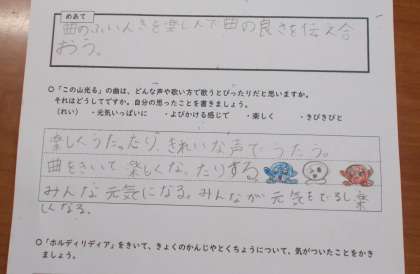 めあて
曲のふいんきを楽しんで曲の良さを伝え合
おう。
○「この山光る」の曲は、どんな声や歌い方で歌うとぴったりだと思いますか。
それはどうしてですか。自分の思ったことを書きましょう。
（れい） ・元気いっぱいに ・よびかける感じて ・楽しく ・きびきびと
楽しくうたったり、きれいな声でうたう。
曲をきいて楽しくなったりする
みんな元気になる。みんなが元気をでるし楽
しくなる。
○「ホルディリディア」をきいて、きょくのかんじやとくちょうについて、気がついたことをかき
ましょう。